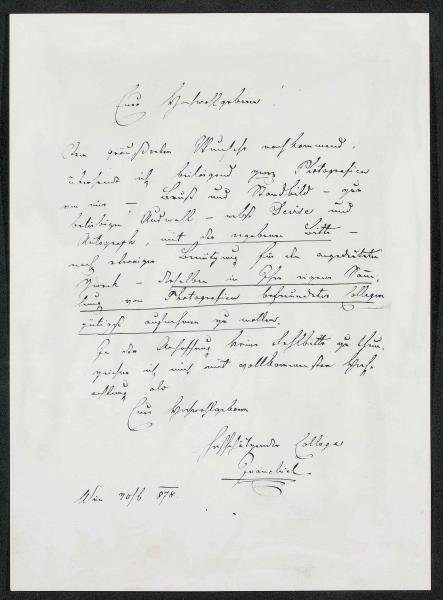 Euer Hochwohlgeboren!
Dem geäußerten Wunsche nachkommend,
übersende ich beiliegend zwei Photografien
von mir – Brust und Standbild – zur
beliebigen Auswahl – nebst Devise und
Autograph, mit der ergebenen Bitte –
nach etwaiger Benützung für den angedeuteten
Zweck – dieselben in Ihre eigene Samm-
lung von Photografien befreundeter Collegen
gütigst aufnehmen zu wollen.
In der Anhoffnung keine Fehlbitte zu thun,
zeichne ich mich mit vollkommenster Hoch-
achtung als
Euer Hochwohlgeboren
hochschätzender College
Wien 30/6 878